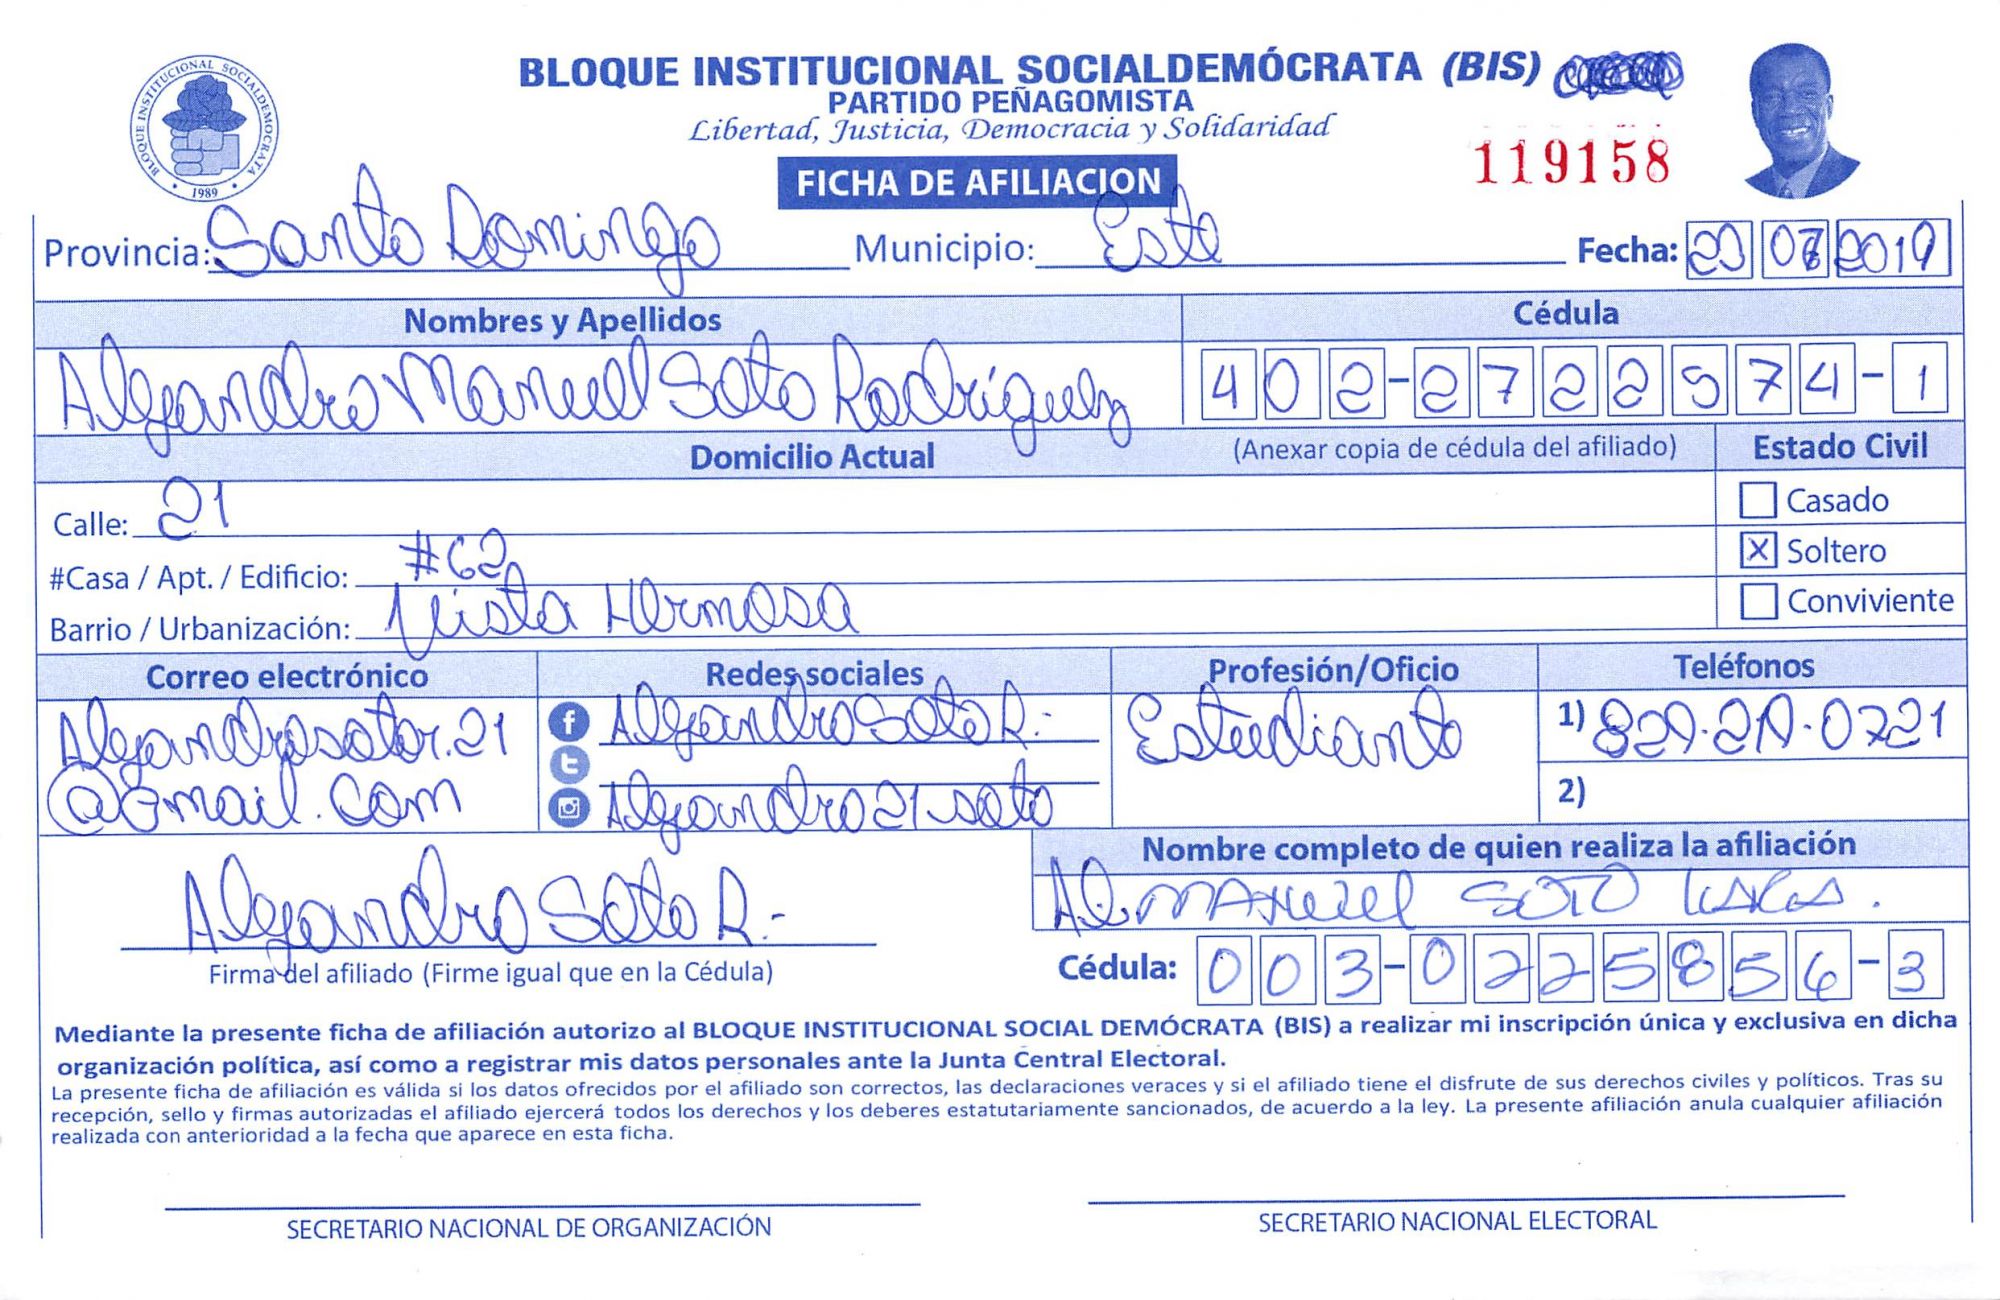 BLOQUE INSTITUCIONAL SOCIALDEMÓCRATA (BIS)
PARTIDO PEÑAGOMISTA
Libertad, Justicia, Democracia y Solidaridad
BLOQUE INSTITUCIONAL SOCIALDEMOCRATA
• 1989 •
FICHA DE AFILIACION
119158
Provincia: Santo Domingo Municipio: Este Fecha: 07 2019
Nombres y Apellidos Cédula
Alejandro Manuel Soto Rodríguez 402-2722974-1
Domicilio Actual (Anexar copia de cédula del afiliado) Estado Civil
Calle: 21
Casado
#Casa / Apt. / Edificio: #62
X Soltero
Barrio / Urbanización: Vista Hermosa
Conviviente
Correo electrónico Redes sociales Profesión/Oficio Teléfonos
Alejandrosotor.21 Alejandro Soto R.- Estudiante 1)
@Gmail.com Alejandro21soto 2)
Nombre completo de quien realiza la afiliación
Manuel SOTO
Alejandro Soto R.-
Firma del afiliado (Firme igual que en la Cédula)
Cédula: 003-0225856-3
Mediante la presente ficha de afiliación autorizo al BLOQUE INSTITUCIONAL SOCIAL DEMÓCRATA (BIS) a realizar mi inscripción única y exclusiva en dicha
organización política, así como a registrar mis datos personales ante la Junta Central Electoral.
La presente ficha de afiliación es válida si los datos ofrecidos por el afiliado son correctos, las declaraciones veraces y si el afiliado tiene el disfrute de sus derechos civiles y políticos. Tras su
recepción, sello y firmas autorizadas el afiliado ejercerá todos los derechos y los deberes estatutariamente sancionados, de acuerdo a la ley. La presente afiliación anula cualquier afiliación
realizada con anterioridad a la fecha que aparece en esta ficha.
SECRETARIO NACIONAL DE ORGANIZACIÓN SECRETARIO NACIONAL ELECTORAL